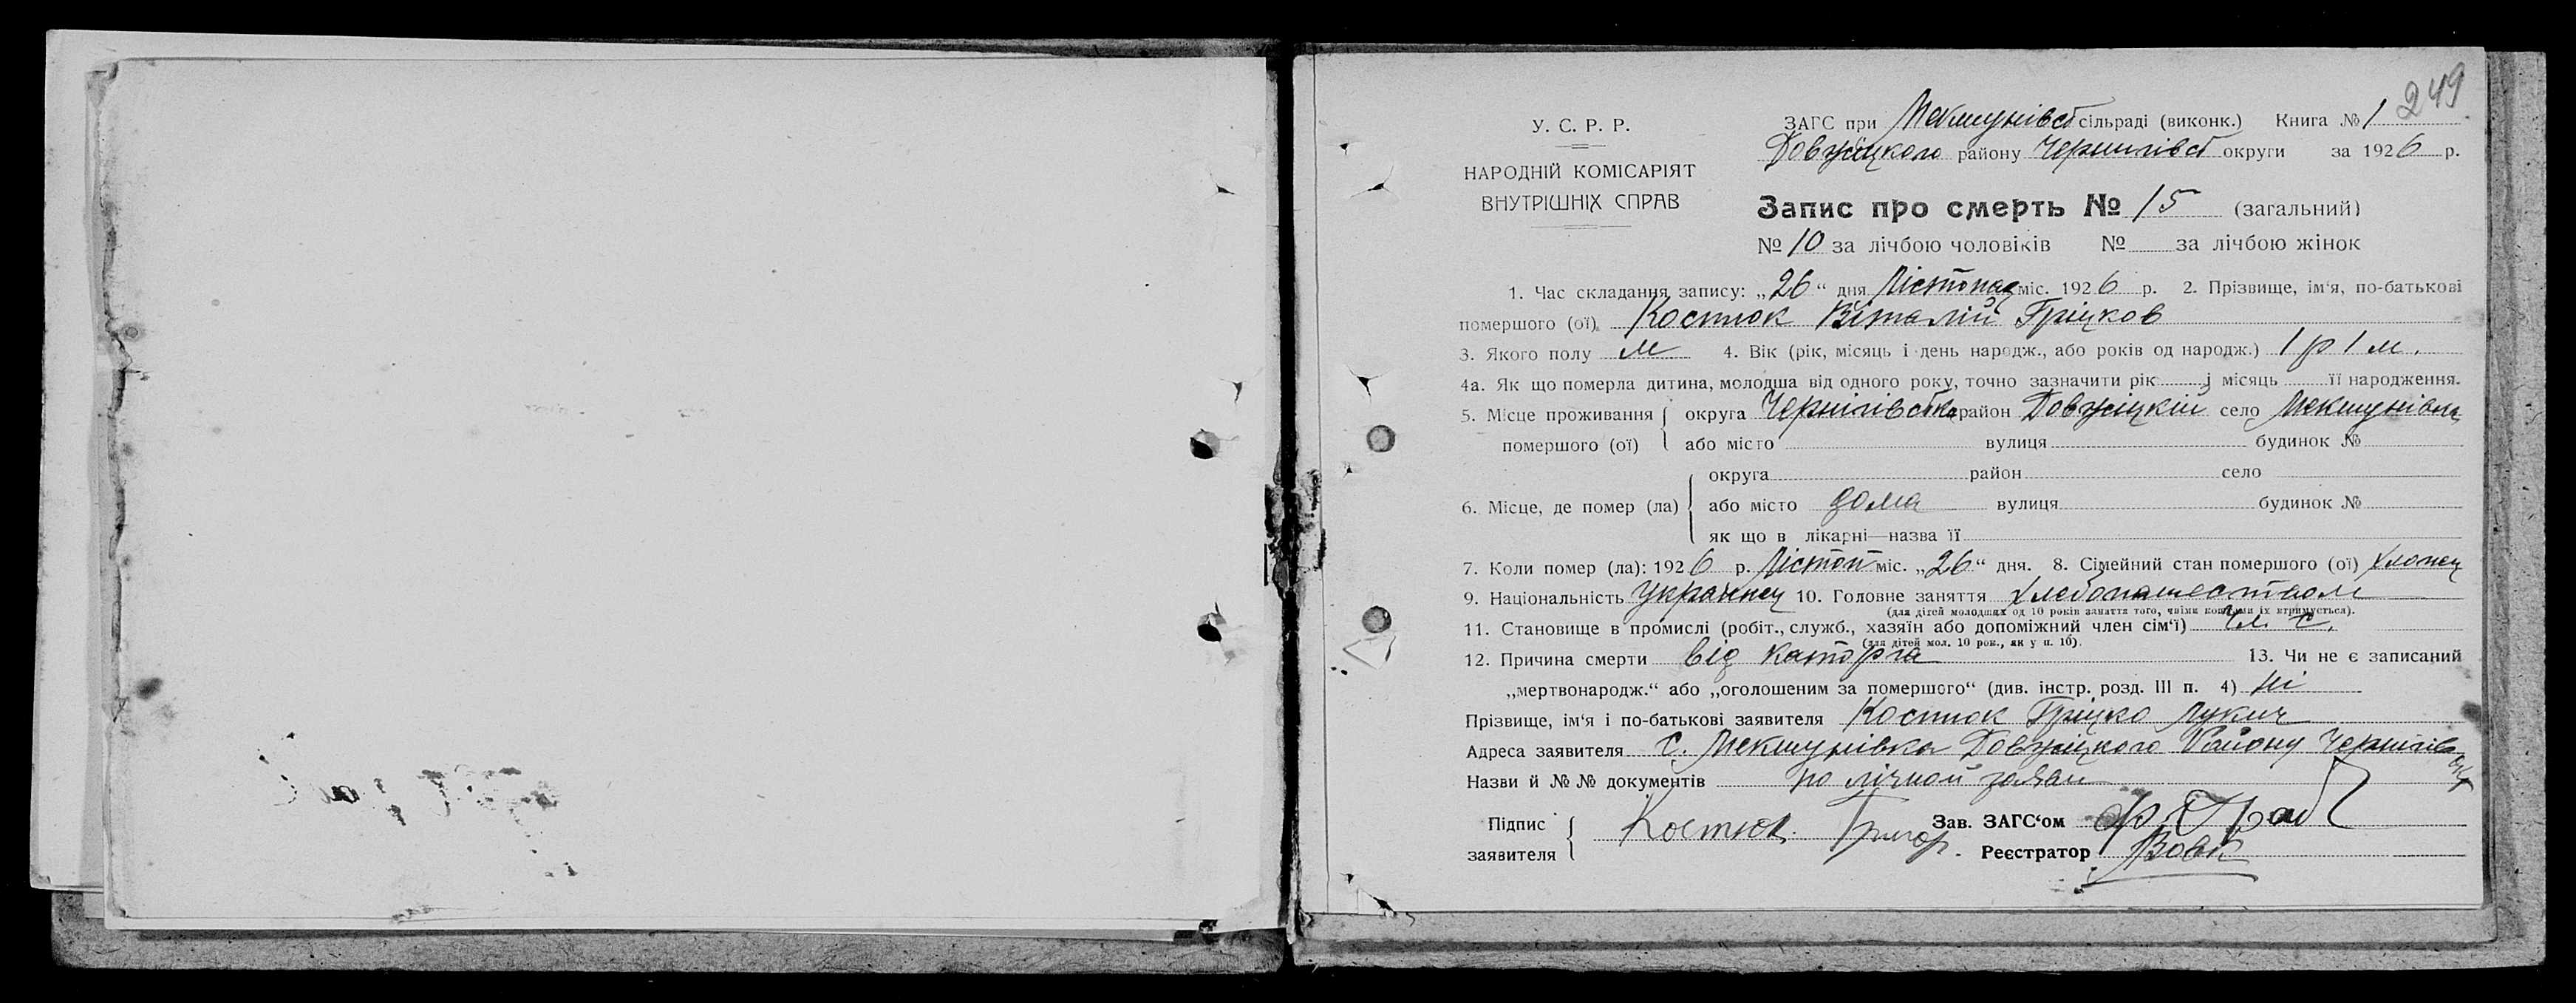 249
У. С. Р. Р.
НАРОДНІЙ КОМІСАРІЯТ
ВНУТРІШНІХ СПРАВ
ЗАГС при Мекшунівсб сільраді (виконк.) Книга № 1
Довжіцкого району Чернигівсб округи за 1926 р.
Запис про смерть № 15 (загальний)
№ 10 за лічбою чоловіків № за лічбою жінок
1. Час складання запису: „26“ дня Лістопад міс. 1926 р. 2. Прізвище, ім'я, по-батькові
помершого (ої) Костюк Віталій Гріцков
3. Якого полу м 4. Вік (рік, місяць і день народж., або років од народж.) 1 р 1 м.
4а. Як що померла дитина, молодша від одного року, точно зазначити рік і місяць її народження.
5. Місце проживання округа Чернігівська район Довжіцкій село Мекшунівка
помершого (ої) або місто вулиця будинок №
округа район село
6. Місце, де помер (ла) або місто дома вулиця будинок №
як що в лікарні—назва її
7. Коли помер (ла): 1926 р. Лістоп міс. „26“ дня. 8. Сімейний стан помершого (ої) хлопец
9. Національність Украинец 10. Головне заняття хлебопашеством
(для дітей молодших од 10 років заняття того, чиїми коштами їх втримується).
11. Становище в промислі (робіт., служб., хазяїн або допоміжний член сім'ї) чл. с.
(для дітей мол. 10 рок., як у п. 10).
12. Причина смерти від каторга 13. Чи не є записаний
„мертвонародж.“ або „оголошеним за помершого“ (див. інстр. розд. III п. 4) ні
Прізвище, ім'я і по-батькові заявителя Костюк Гріцко Лукич
Адреса заявителя С. Мекшунівка Довжіцкого Району Чернигів
Назви й №№ документів по лічной заяви
Підпис заявителя Костюк Григор. Зав. ЗАГС'ом
Реєстратор Вовк